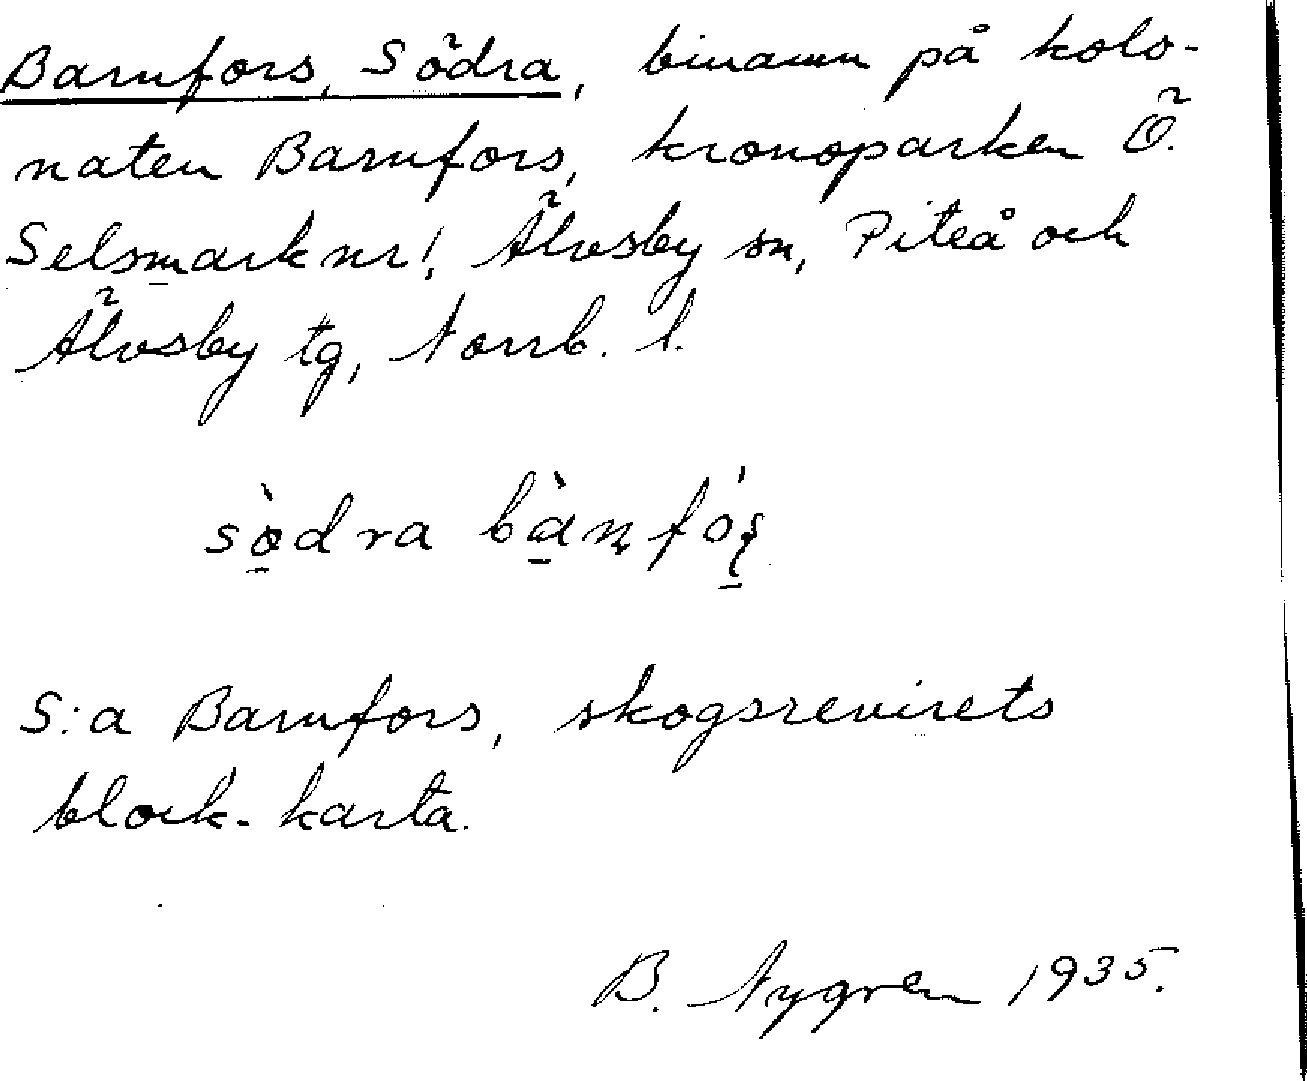 Barnfors, Södra, binamn på kolo-
naten Barnfors, kronoparken Ö.
Selsmark nr 1, Älvsby sn, Piteå och
Älvsby tg, Norrb. l.
södra
S:a Barnfors, skogsrevirets
block-karta.
B. Nygren 1935.